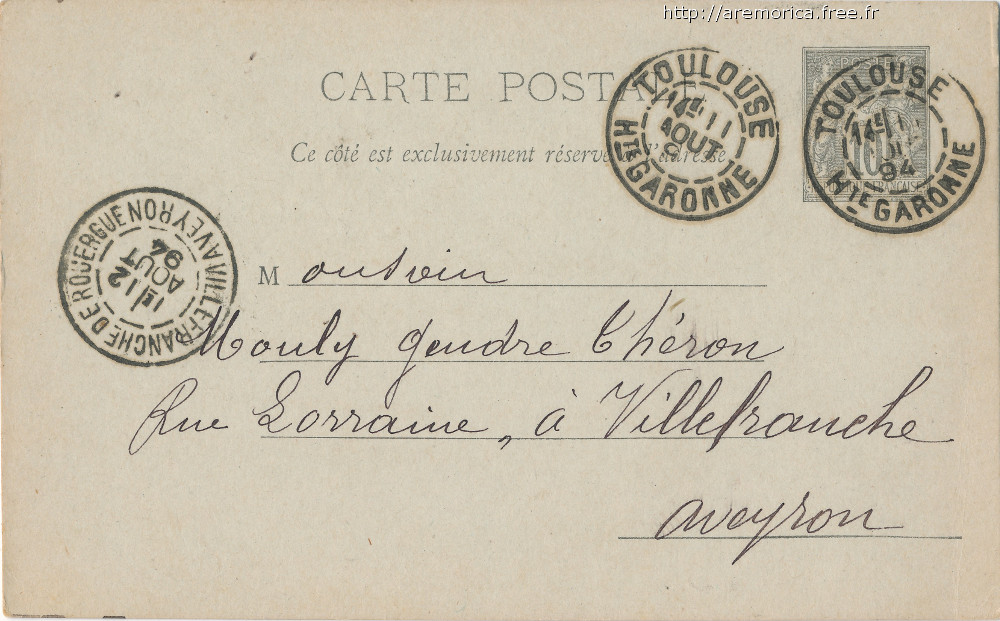 http://aremorica.free.fr
CARTE POSTALE
Ce côté est exclusivement réservé à l'adresse
TOULOUSE
11
AOUT
HTE GARONNE
TOULOUSE
11
94
HTE GARONNE
VILLEFRANCHE DE ROUERGUE
12
AOUT
94
AVEYRON
Monsieur
Mouly gendre Théron
Rue Lorraine, à Villefranche
Aveyron